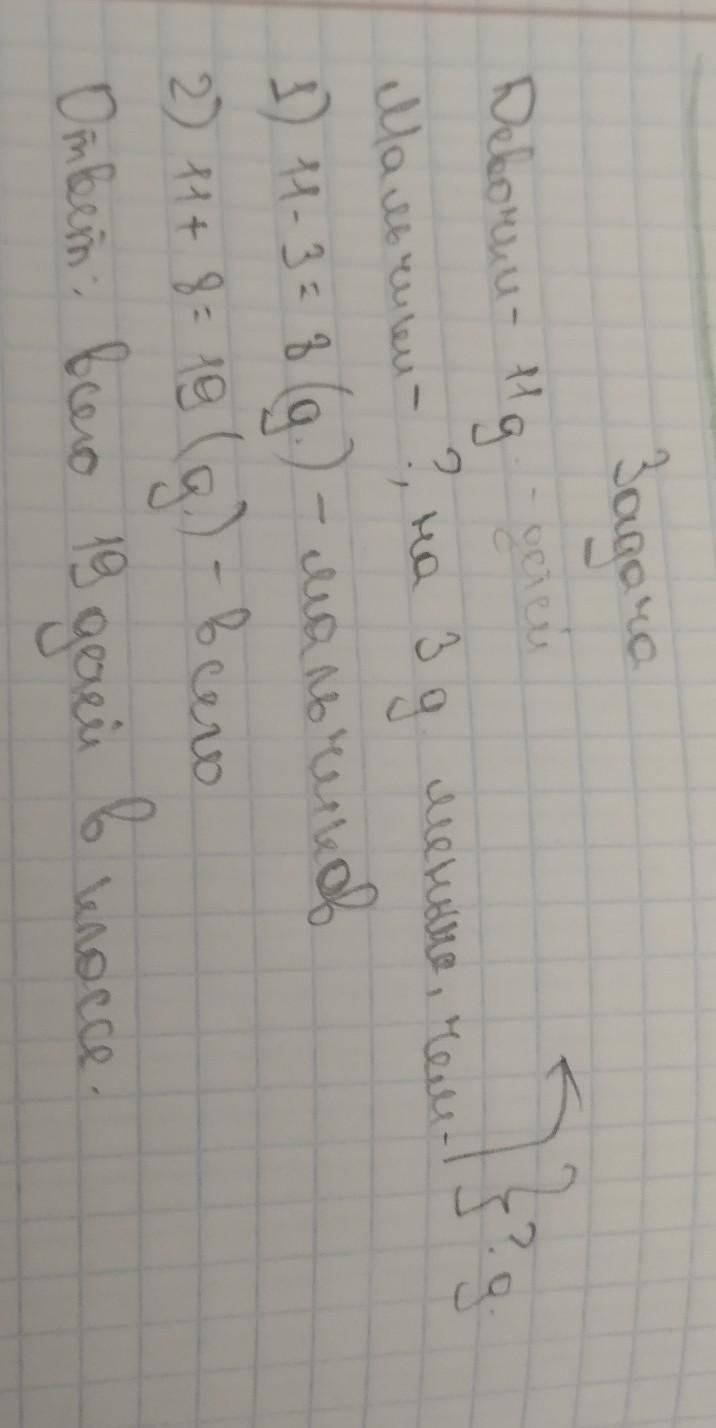 Задача
Девочки - 11 д. - детей
Мальчики - ?, на 3 д. меньше, чем - } ? д.
1) 11 - 3 = 8 (д.) - мальчиков
2) 11 + 8 = 19 (д.) - всего
Ответ: всего 19 детей в классе.